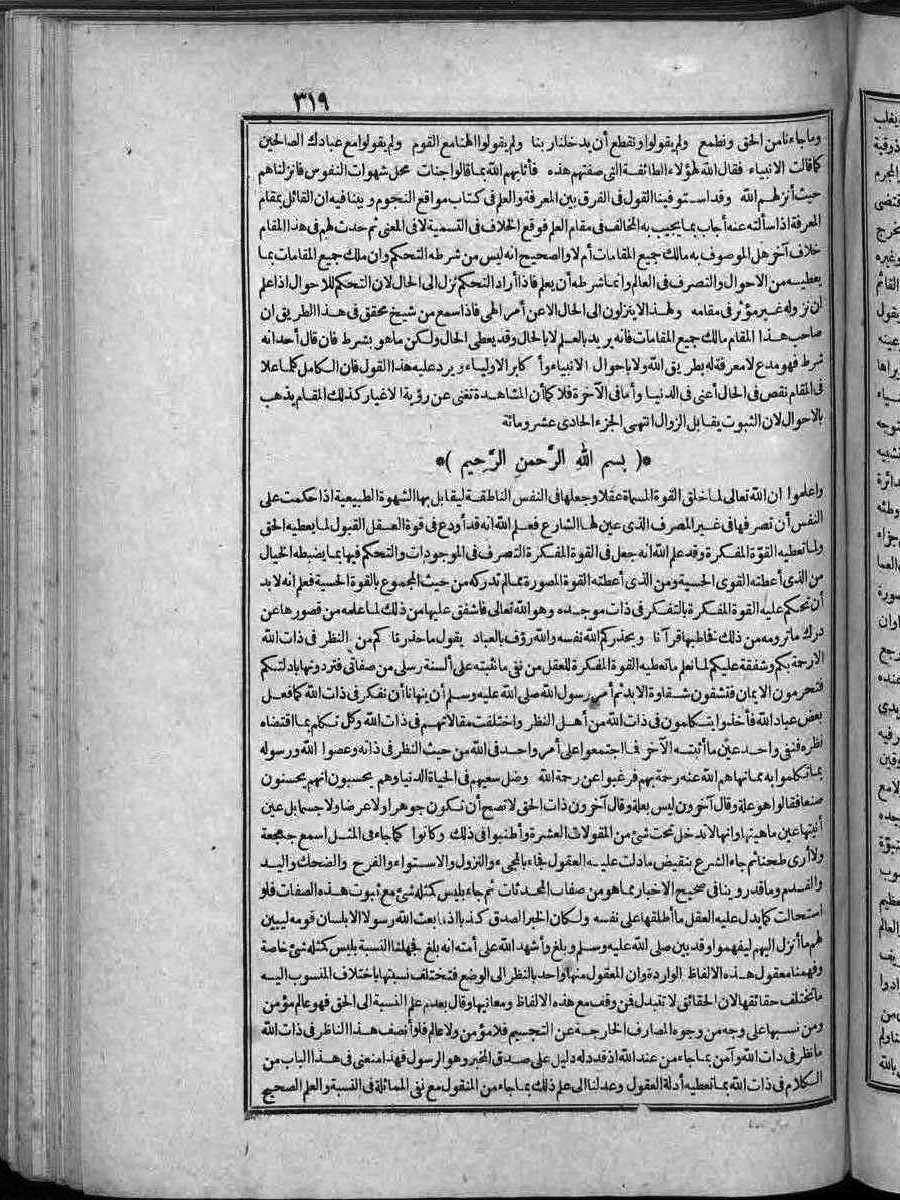 ٣١٩
وما جاءنا من الحق ونطمع ولم يقولوا ونقطع أن يدخلنا ربنا ولم يقولوا الهنا مع القوم ولم يقولوا مع عبادك الصالحين
كما قالت الانبياء فقال الله لهؤلاء الطائفة التى صفتهم هذه فأثابهم الله بما قالوا جنات محل شهوات النفوس فانزلناهم
حيث أنزلهم الله وقد استوفينا القول فى الفرق بين المعرفة والعلم فى كتاب مواقع النجوم وبينا فيه ان القائل بمقام
المعرفة اذا سألته عنه أجاب بما يجيب به المخالف فى مقام العلم فوقع الخلاف فى التسمية لا فى المعنى ثم حدث لهم فى هذا المقام
خلاف آخر هل الموصوف به مالك جميع المقامات أم لا والصحيح انه ليس من شرطه التحكم وان ملك جميع المقامات بما
يعطيه من الاحوال والتصرف فى العالم وانما شرطه أن يعلم فاذا أراد التحكم نزل الى الحال لان التحكم للاحوال اذا علم
ان نزوله غير مؤثر فى مقامه ولهذا لا ينزلون الى الحال الا عن أمر الهى فاذا سمع من شيخ محقق فى هذا الطريق ان
صاحب هذا المقام مالك جميع المقامات فانه يريد بالعلم لا بالحال وقد يعطى الحال ولكن ما هو بشرط فان قال أحد انه
شرط فهو مدع لا معرفة له بطريق الله ولا باحوال الانبياء وأكابر الاولياء ويرد عليه هذا القول فان الكامل كلما علا
فى المقام نقص فى الحال أعنى فى الدنيا وأما فى الآخرة فلا كما أن المشاهدة تغنى عن رؤية الاغيار كذلك المقام يذهب
بالاحوال لان الثبوت يقابل الزوال انتهى الجزء الحادى عشر ومائة
*( بسم الله الرّحمن الرّحيم )*
واعلموا ان الله تعالى لما خلق القوة المسماة عقلا وجعلها فى النفس الناطقة ليقابل بها الشهوة الطبيعية اذا حكمت على
النفس أن تصرفها فى غير المصرف الذى عين لها الشارع فعلم الله انه قد أودع فى قوة العقل القبول لما يعطيه الحق
ولما تعطيه القوّة المفكرة وقد علم الله انه جعل فى القوة المفكرة التصرف فى الموجودات والتحكم فيها بما يضبطه الخيال
من الذى أعطته القوى الحسية ومن الذى أعطته القوة المصورة مما لم تدركه من حيث المجموع بالقوة الحسية فعلم انه لا بد
أن تحكم عليه القوة المفكرة بالتفكر فى ذات موجده وهو الله تعالى فاشفق عليها من ذلك لما علمه من قصورها عن
درك ما ترومه من ذلك فخاطبها قرآنا ويحذركم الله نفسه والله رؤف بالعباد يقول ما حذرتكم من النظر فى ذات الله
الا رحمة بكم وشفقة عليكم لما نعلم ما تعطيه القوة المفكرة للعقل من نفى ما نثبته على ألسنة رسلى من صفاتى فتردونها بادلتكم
فتحرمون الايمان فتشقون شقاوة الابد ثم أمر رسول الله صلى الله عليه وسلم أن ينهانا أن نفكر فى ذات الله كما فعل
بعض عباد الله فأخذوا يتكلمون فى ذات الله من أهل النظر واختلفت مقالاتهم فى ذات الله وكل تكلم بما اقتضاه
نظره فنفى واحد عين ما أثبته الآخر فما اجتمعوا على أمر واحد فى الله من حيث النظر فى ذاته وعصوا الله ورسوله
بما تكلموا به مما نهاهم الله عنه رحمة بهم فرغبوا عن رحمة الله وضل سعيهم فى الحياة الدنيا وهم يحسبون انهم يحسنون
صنعا فقالوا هو علة وقال آخرون ليس بعلة وقال آخرون ذات الحق لا تصح أن تكون جوهرا ولا عرضا ولا جسما بل عين
أنيتها عين ماهيتها وانها لا تدخل تحت شئ من المقولات العشرة وأطنبوا فى ذلك وكانوا كما جاء فى المثل اسمع جعجعة
ولا أرى طحنا ثم جاء الشرع بنقيض ما دلت عليه العقول فجاء بالمجىء والنزول والاستواء والفرح والضحك واليد
والقدم وما قدروينا فى صحيح الاخبار مما هو من صفات المحدثات ثم جاء بليس كمثله شئ مع ثبوت هذه الصفات فلو
استحالت كما يدل عليه العقل ما أطلقها على نفسه ولكان الخبر الصدق كذبا اذ ما بعث الله رسولا الا بلسان قومه ليبين
لهم ما أنزل اليهم ليفهموا وقد بين صلى الله عليه وسلم وبلغ وأشهد الله على أمته انه بلغ فجهلنا النسبة بليس كمثله شئ خاصة
وفهمنا معقول هذه الالفاظ الواردة وان المعقول منها واحد بالنظر الى الوضع فتختلف نسبتها باختلاف المنسوب اليه
ما تختلف حقائقها لان الحقائق لا تتبدل فمن وقف مع هذه الالفاظ ومعانيها وقال بعدم علم النسبة الى الحق فهو عالم مؤمن
ومن نسبها على وجه من وجوه المصارف الخارجة عن التجسيم فلا مؤمن ولا عالم فلو أنصف هذا الناظر فى ذات الله
ما نظر فى ذات الله وآمن بما جاء من عند الله اذ قد دله دليل على صدق المخبر وهو الرسول فهذا منعنى فى هذا الباب من
الكلام فى ذات الله بما تعطيه أدلة العقول وعدلنا الى علم ذلك بما جاء من المنقول مع نفى المماثلة فى النسبة والعلم الصحيح